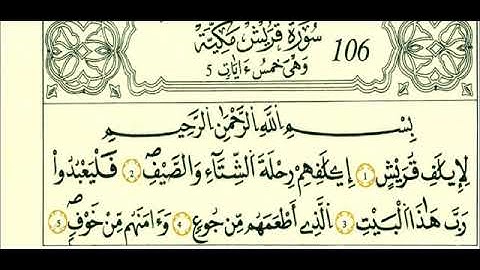 سُورَةُ قُرَيْشٍ مَكِّيَّةٌ 106
وَهْيَ خَمْسُ ءَايَاتٍ 5
بِسْمِ اِ۬للَّهِ اِ۬لرَّحْمَٰنِ اِ۬لرَّحِيمِ
لِإِيلَٰفِ قُرَيْشٍ 1 إِۦلَٰفِهِمْ رِحْلَةَ اَ۬لشِّتَآءِ وَالصَّيْفِۖ 2 فَلْيَعْبُدُواْ
رَبَّ هَٰذَا اَ۬لْبَيْتِ 3 اِ۬لذِےٓ أَطْعَمَهُم مِّن جُوعٍ 4 وَءَامَنَهُم مِّنْ خَوْفٍۖ 5